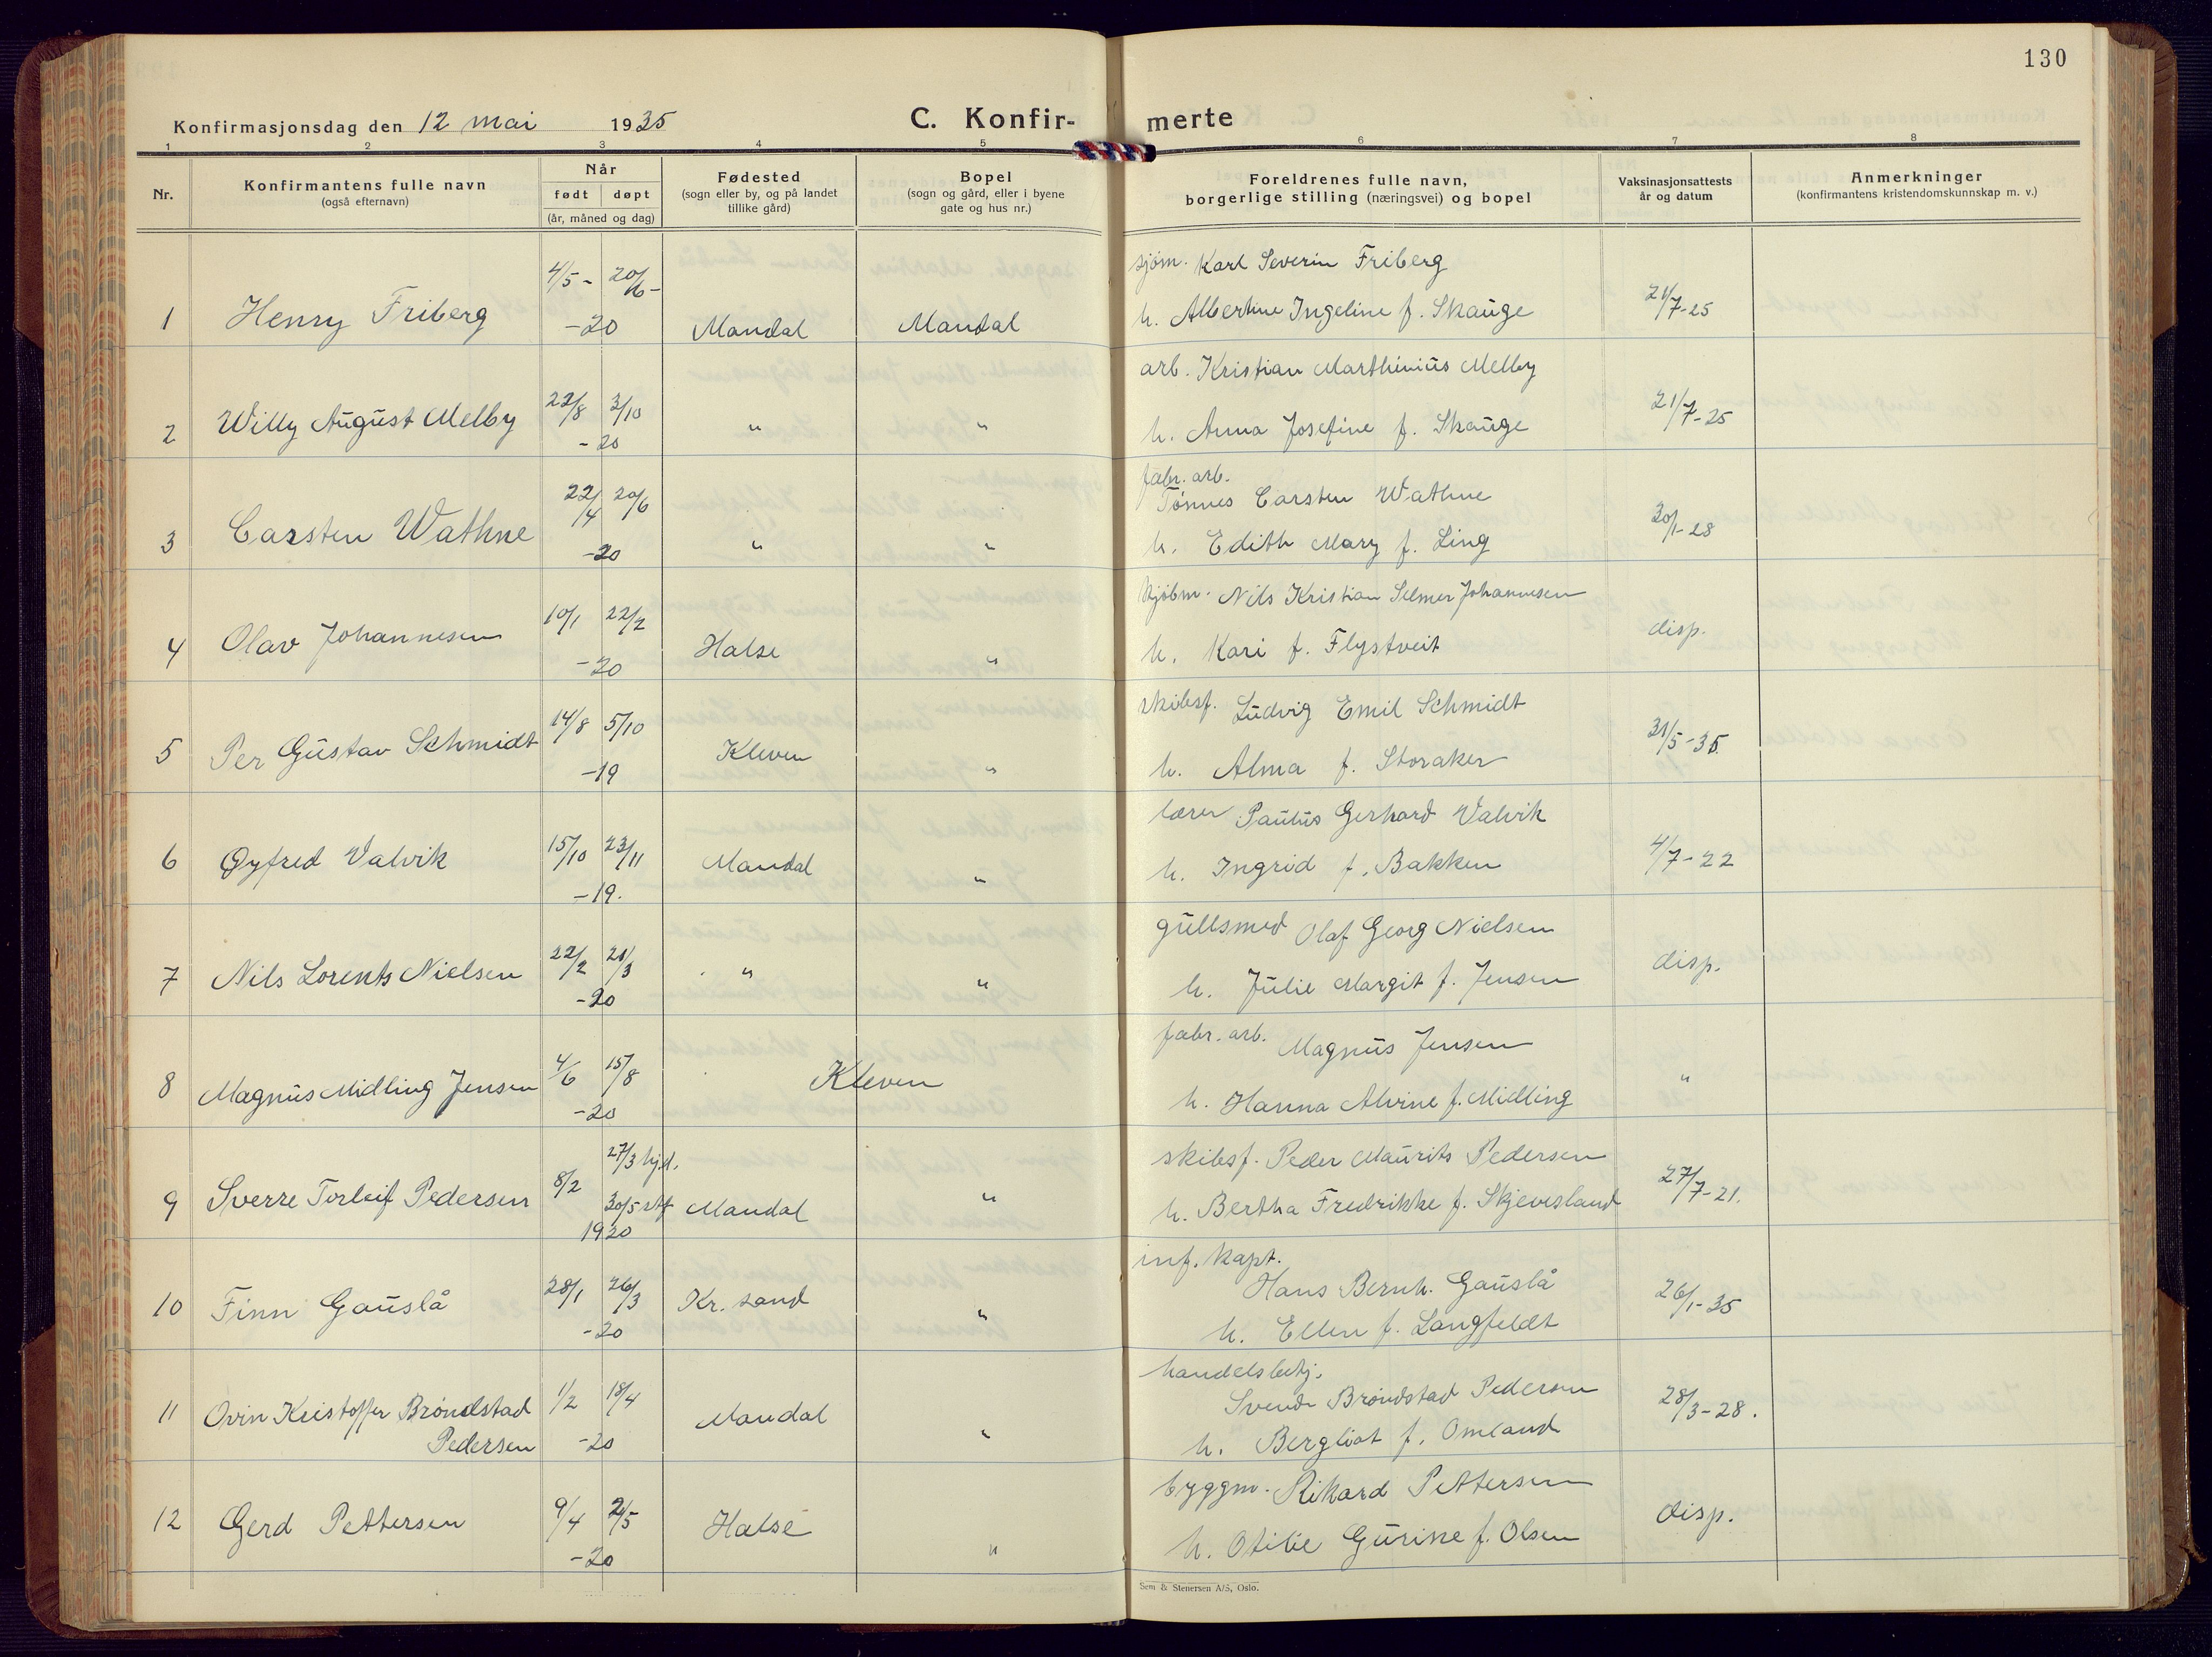 130
Konfirmasjonsdag den 12 mai 1935 C. Konfir- merte
1 2 3 4 5 6 7 8
Nr.
Konfirmantens fulle navn
(også efternavn)
Når
født døpt
(år, måned og dag)
Fødested
(sogn eller by, og på landet
tillike gård)
Bopel
(sogn og gård, eller i byene
gate og hus nr.)
Foreldrenes fulle navn,
borgerlige stilling (næringsvei) og bopel
Vaksinasjonsattests
år og datum
Anmerkninger
(konfirmantens kristendomskunnskap m. v.)
4/5 - 20/6 - sjøm. Karl Severin Friberg
1 Henry Friberg -20 Mandal Mandal h. Albertine Ingeline f. Skauge 21/7-25
arb. Kristian Marthinius Melby
2 Willy August Melby 22/8 3/10 -20 " " h. Anna Josefine f. Skauge 21/7-25
fabr. arb.
22/4 20/6 Tønnes Carsten Wathne
3 Carsten Wathne -20 " " h. Edith Mary f. Ling 30/1-28
kjøbm. Nils Kristian Selmer Johannesen
4 Olav Johannesen 10/1 22/2 -20 Halse " h. Kari f. Flystveit disp.
skibsf. Ludvig Emil Schmidt
5 Per Gustav Schmidt 14/8 5/10 -19 Kleven " h. Alma f. Storaker 31/5-35
lærer Paulus Gerhard Valvik
6 Øyfred Valvik 15/10 23/11 -19. Mandal " h. Ingrid f. Bakken 4/7-22
gullsmed Olaf Georg Nielsen
7 Nils Lorents Nielsen 22/2 21/3 -20 " " h. Julie Margit f. Jensen disp.
fabr. arb. Magnus Jensen
8 Magnus Midling Jensen 4/6 15/8 -20 Kleven h. Hanna Alvine f. Midling "
27/3 hjd. skibsf. Peder Maurits Pedersen
9 Sverre Torleif Pedersen 8/2 30/5 stf 1920 Mandal " h. Bertha Fredrikke f. Skjevesland 27/7-21.
inf. kapt.
28/1 26/3 Hans Bernh. Gauslå
10 Finn Gauslå -20 Kr. sand " h. Ellen f. Langfeldt 26/1-35
handelsbetj.
11 Ovin Kristoffer Brøndstad 1/2 18/4 Mandal Svend Brøndstad Pedersen 28/3-28.
Pedersen -20 " h. Bergliot f. Omland
byggm. Rikard Pettersen
12 Gerd Pettersen 9/4 2/5 -20 Halse " h. Otilie Gurine f. Olsen disp.
Sem & Stenersen A/S, Oslo.